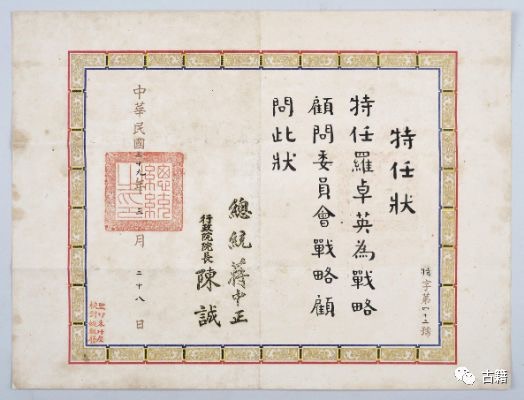 特任狀
特任羅卓英為戰略
顧問委員會戰略顧
問此狀
特字第四十二號
總統 蔣中正
行政院院長 陳誠
中華民國三十九年三月二十八日
總統之印
古籍